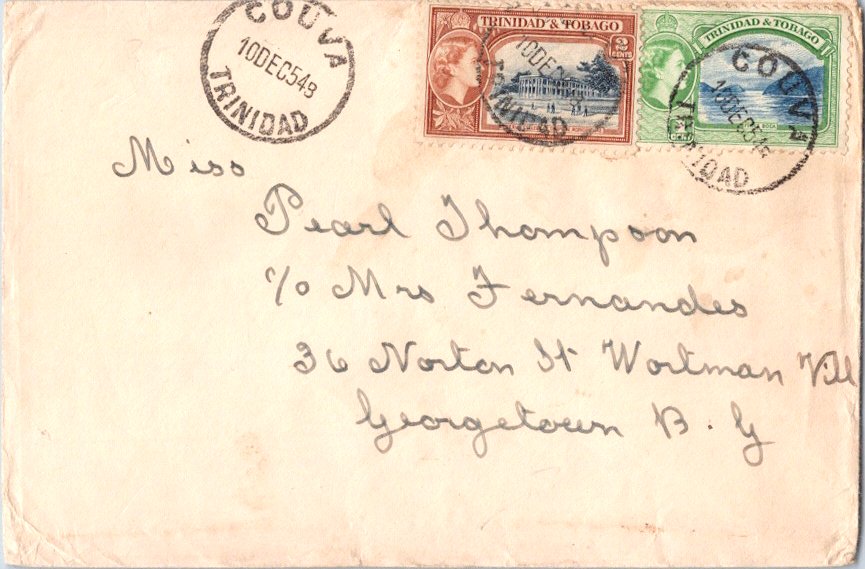 COUVA
10DEC54B
TRINIDAD
TRINIDAD & TOBAGO
2
CENTS
10DEC
TRINIDAD & TOBAGO
COUVA
10DEC54B
Miss
Pearl Thompson
c/o Mrs Fernandes
36 Norton St Wortman Vill
Georgetown B. G